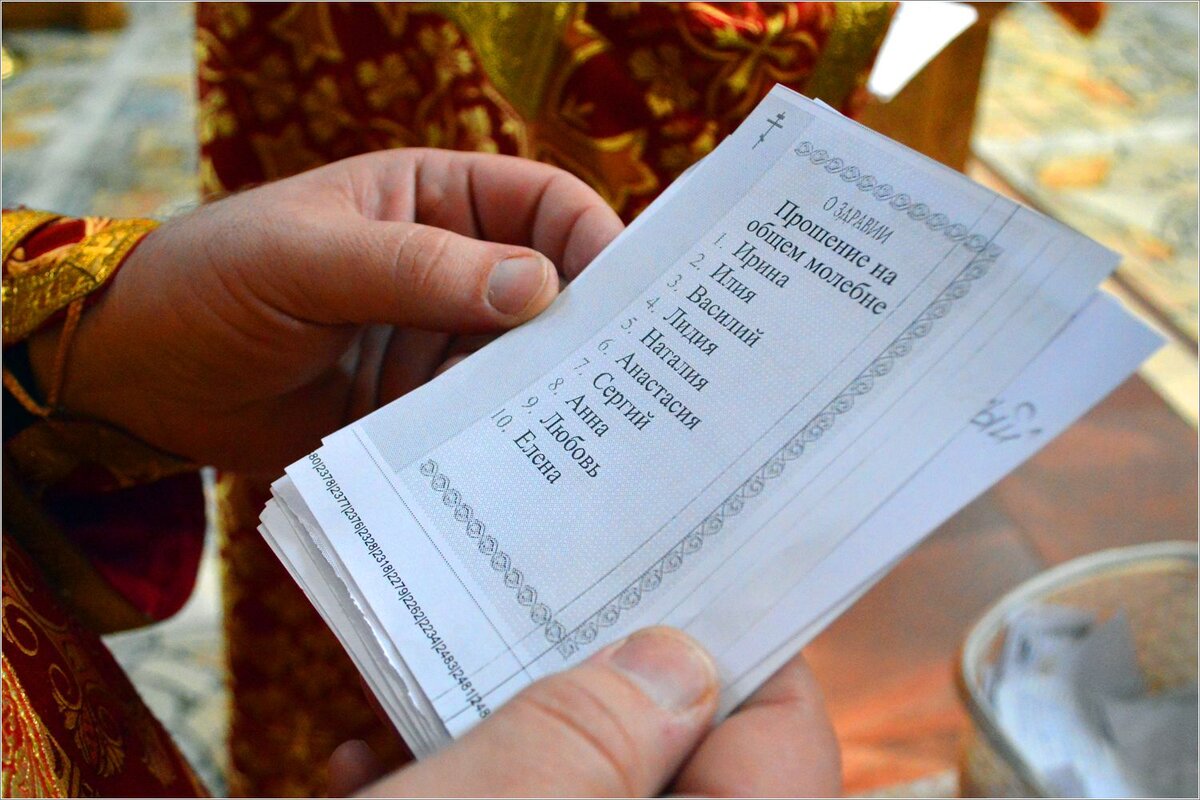 О ЗДРАВИИ
Прошение на
общем молебне
1. Ирина
2. Илия
3. Василий
4. Лидия
5. Наталия
6. Анастасия
7. Сергий
8. Анна
9. Любовь
10. Елена
80|2378|2377|2376|2328|2318|2279|2262|2234|2483|2481|248